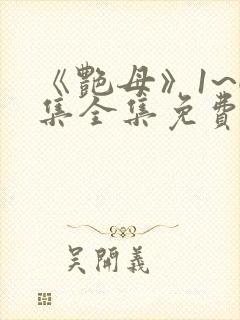 《艷母》1~
集全集免費
吴開義